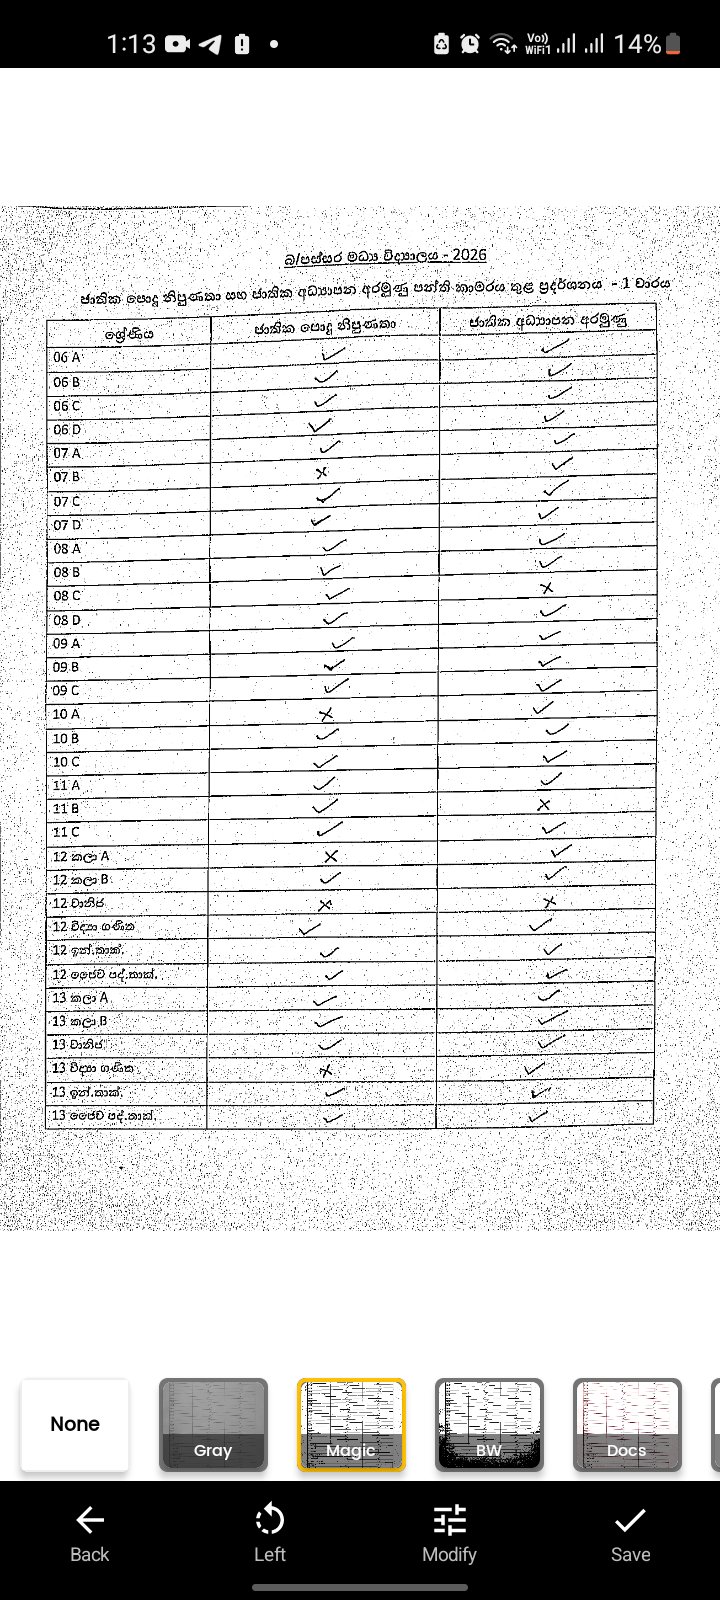 1:13
Vo)) WiFi1 14%
බ/පස්සර මධ්‍ය විද්‍යාලය - 2026
ජාතික පොදු නිපුණතා සහ ජාතික අධ්‍යාපන අරමුණු පන්ති කාමරය තුළ ප්‍රදර්ශනය - 1 වාරය
ශ්‍රේණිය ජාතික පොදු නිපුණතා ජාතික අධ්‍යාපන අරමුණු
06 A ✓ ✓
06 B ✓ ✓
06 C ✓ ✓
06 D ✓ ✓
07 A ✓ ✓
07 B ✗ ✓
07 C ✓ ✓
07 D ✓ ✓
08 A ✓ ✓
08 B ✓ ✓
08 C ✓ ✗
08 D ✓ ✓
09 A ✓ ✓
09 B ✓ ✓
09 C ✓ ✓
10 A ✗ ✓
10 B ✓ ✓
10 C ✓ ✓
11 A ✓ ✓
11 B ✓ ✗
11 C ✓ ✓
12 කලා A ✗ ✓
12 කලා B ✓ ✓
12 වානිජ ✗ ✗
12 විද්‍යා ගණිත ✓ ✓
12 ඉන්.තාක්. ✓ ✓
12 ජෛව පද්.තාක්. ✓ ✓
13 කලා A ✓ ✓
13 කලා B ✓ ✓
13 වානිජ ✓ ✓
13 විද්‍යා ගණිත ✗ ✓
13 ඉන්.තාක්. ✓ ✓
13 ජෛව පද්.තාක්. ✓ ✓
None Gray Magic BW Docs
Back Left Modify Save